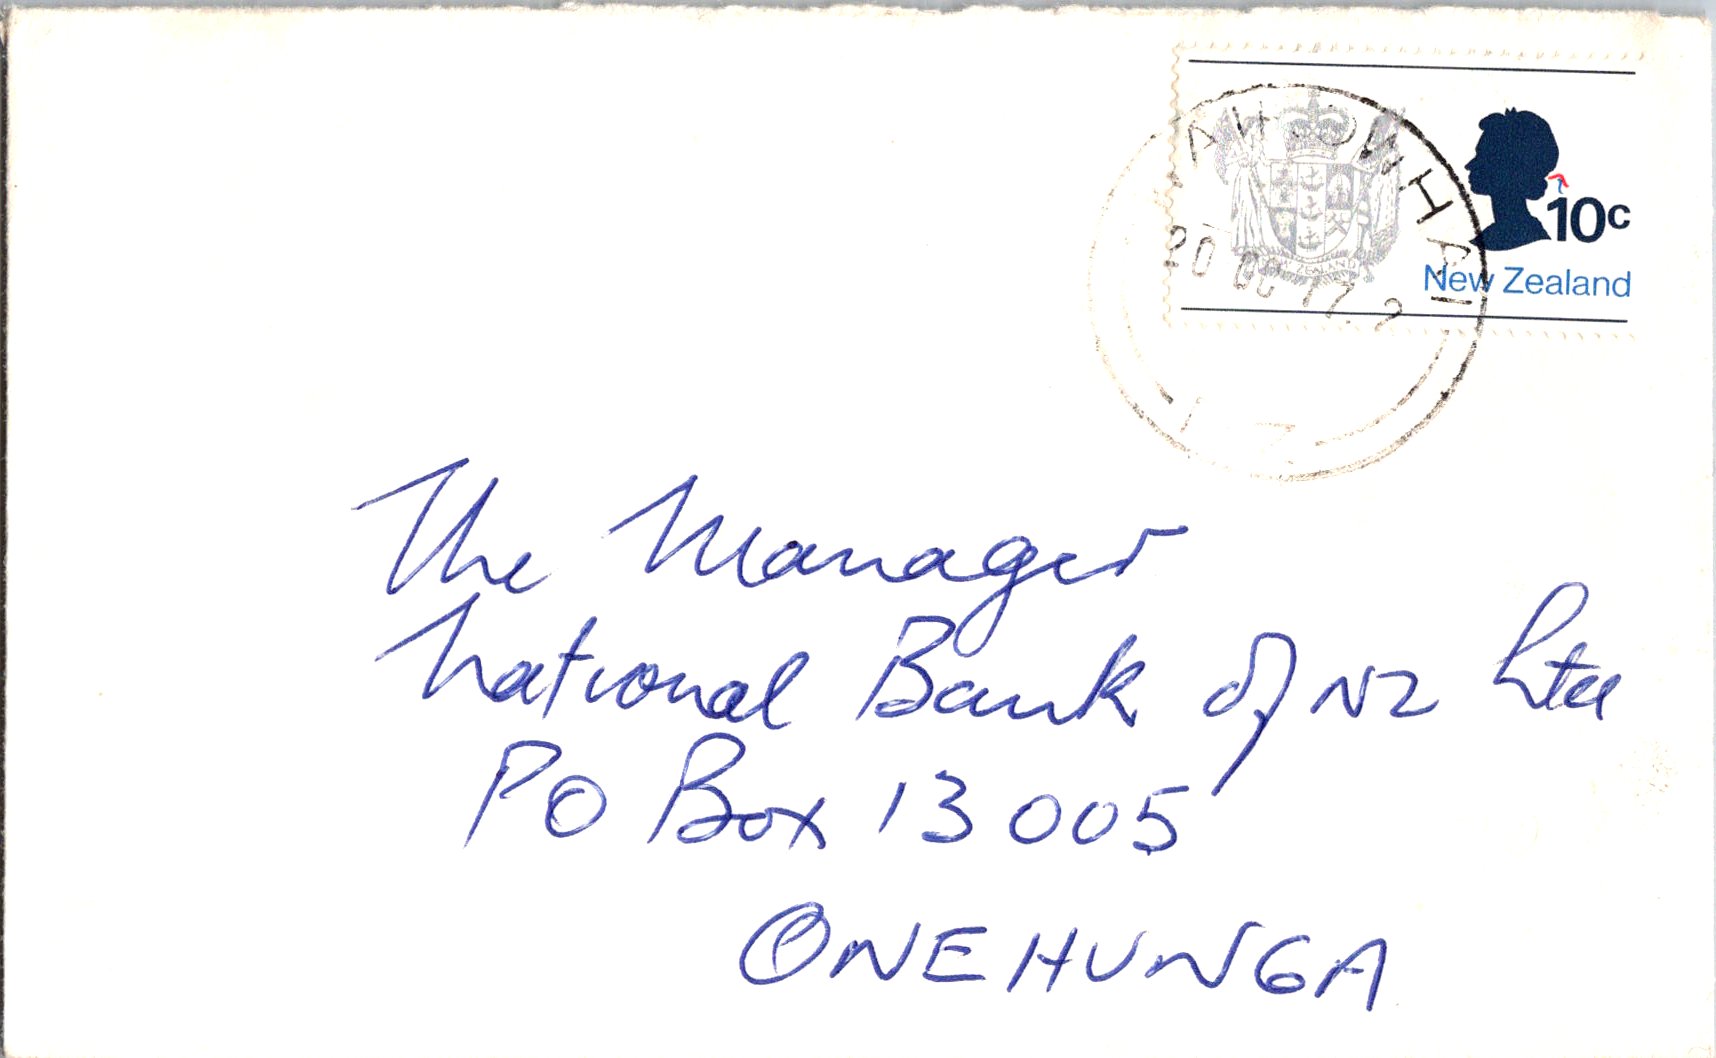 10c
New Zealand
NEW ZEALAND
20 OC 77
The Manager
National Bank of NZ Ltd
PO Box 13005
ONEHUNGA